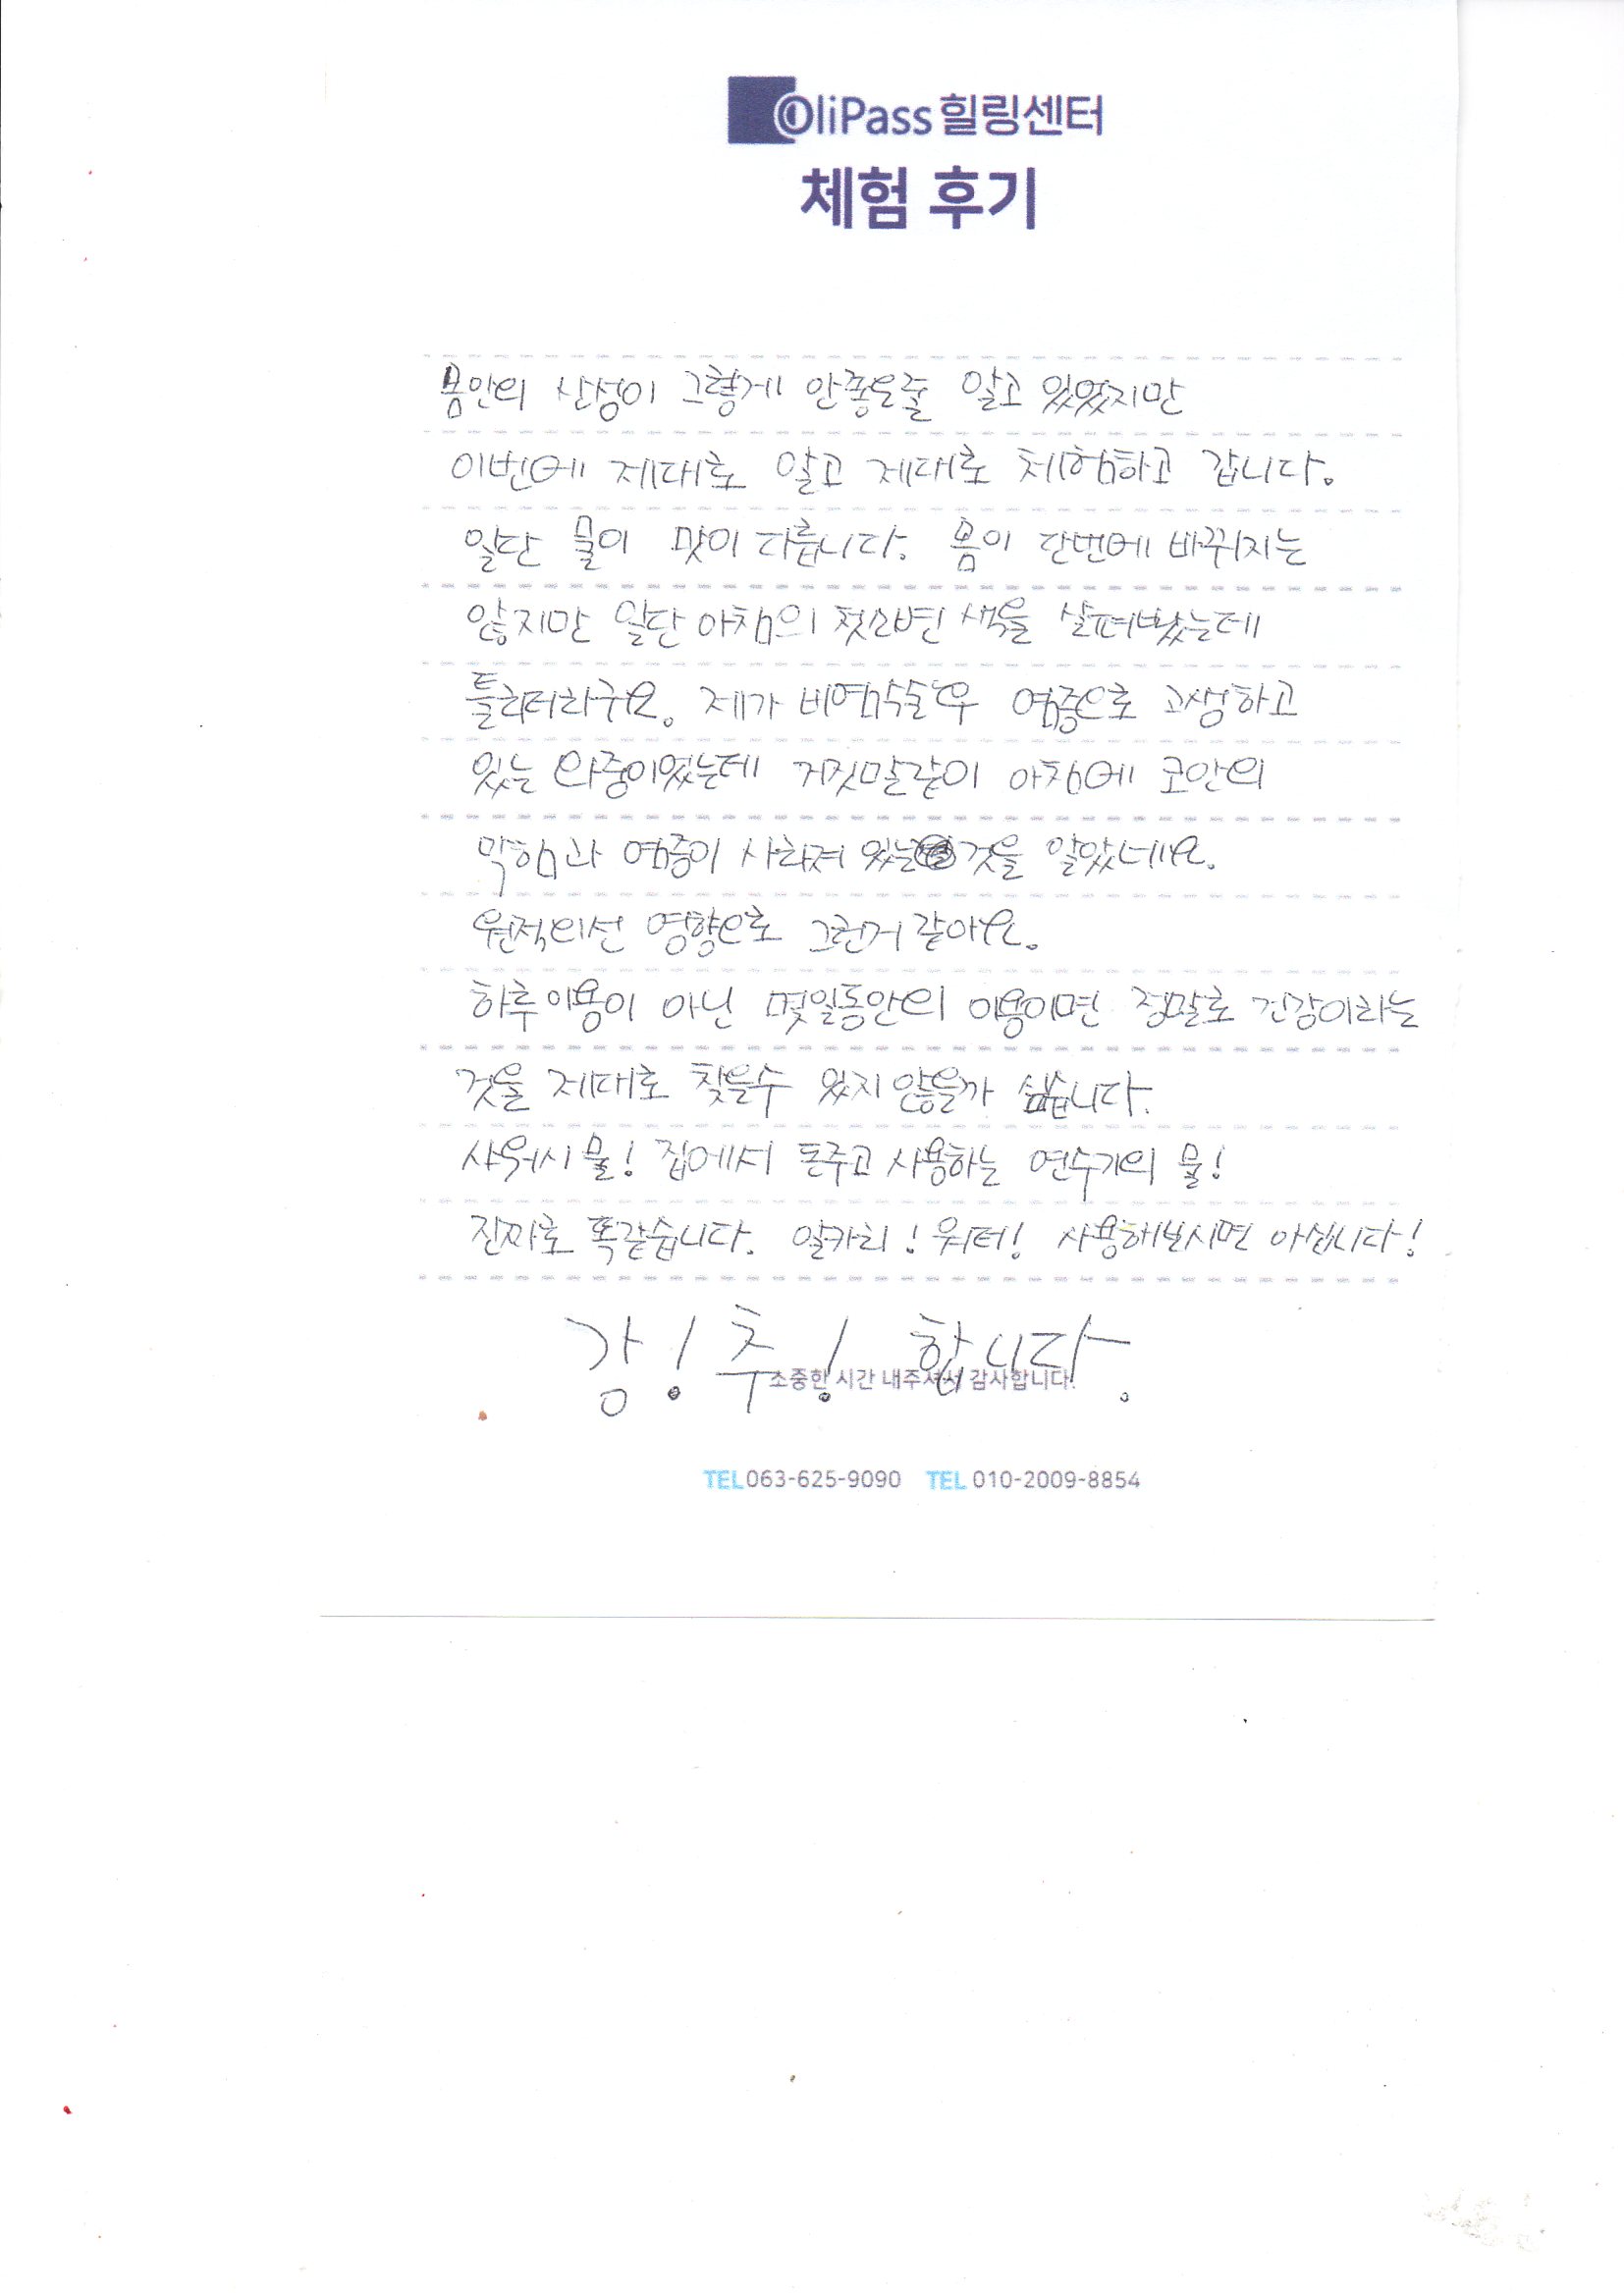 OliPass 힐링센터
체험 후기
몸안의 산성이 그렇게 안좋은줄 알고 있었지만
이번에 제대로 알고 제대로 체험하고 갑니다.
일단 물이 맛이 다릅니다. 몸이 단번에 바뀌지는
않지만 일단 아침의 첫소변 색을 살펴봤는데
틀리더라구요. 제가 비염수술후 염증으로 고생하고
있는 와중이었는데 거짓말같이 아침에 코안의
막힘과 염증이 사라져 있는 것을 알았네요.
원적외선 영향으로 그런거 같아요.
하루이용이 아닌 몇일동안의 이용이면 정말로 건강이라는
것을 제대로 찾을수 있지 않을가 싶습니다.
샤워시 물! 집에서 돈주고 사용하는 연수기의 물!
진짜로 똑같습니다. 알카리! 워터! 사용해보시면 아십니다!
강! 추! 합니다.
소중한 시간 내주셔서 감사합니다.
TEL 063-625-9090 TEL 010-2009-8854